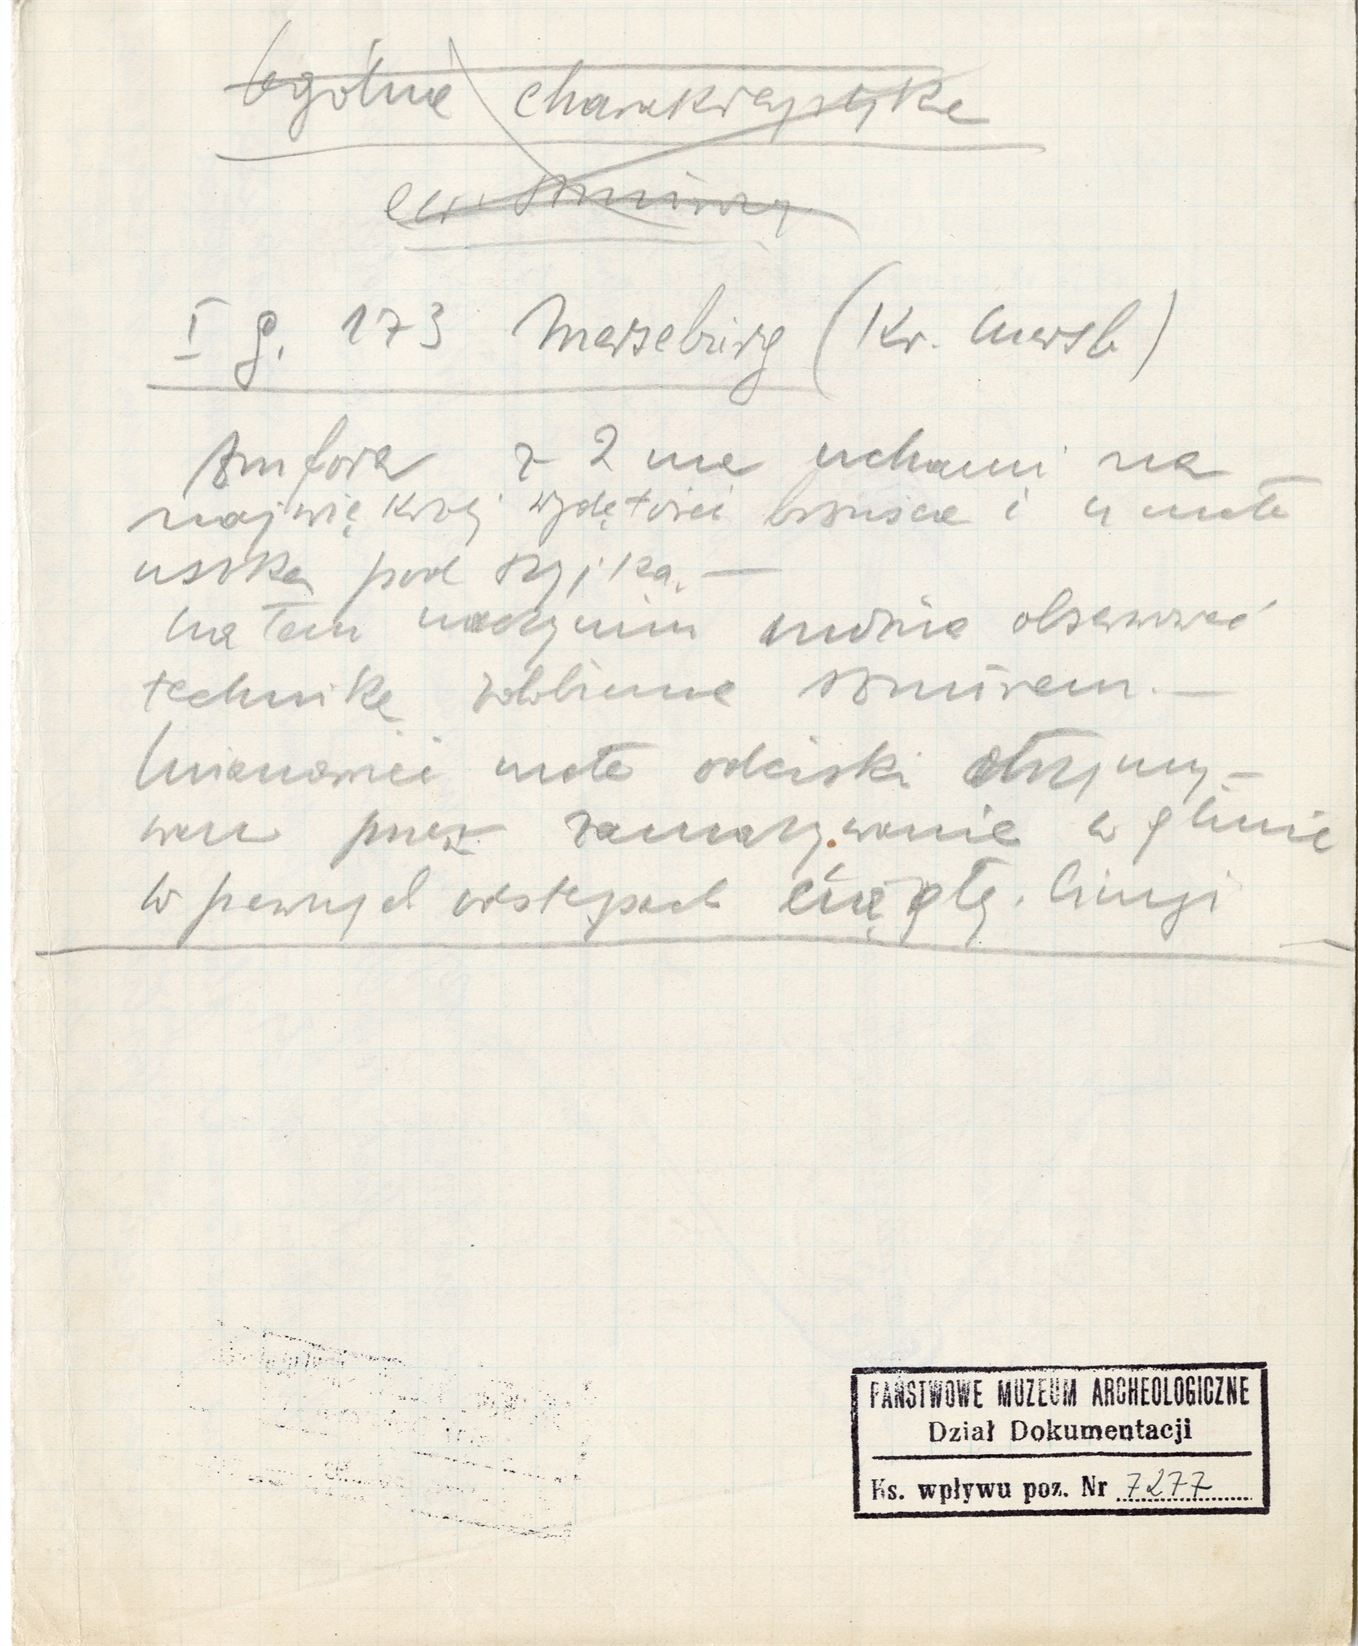 Ogólna charakterystyka
cer. sznurow.
I g. 173 Merseburg (Kr. Merseb)
Amfora z 2 ma uchami na
największej wydętości brzuśca i 4 małe
uszka pod szyjką. —
Na tem naczyniu można obserwować
technikę zdobienia sznurem. —
Mianowicie małe odciski otrzymy-
wano przez zamaczywanie w glinie
w pewnych odstępach ciągłej linji
PAŃSTWOWE MUZEUM ARCHEOLOGICZNE
Dział Dokumentacji
Ks. wpływu poz. Nr 7277